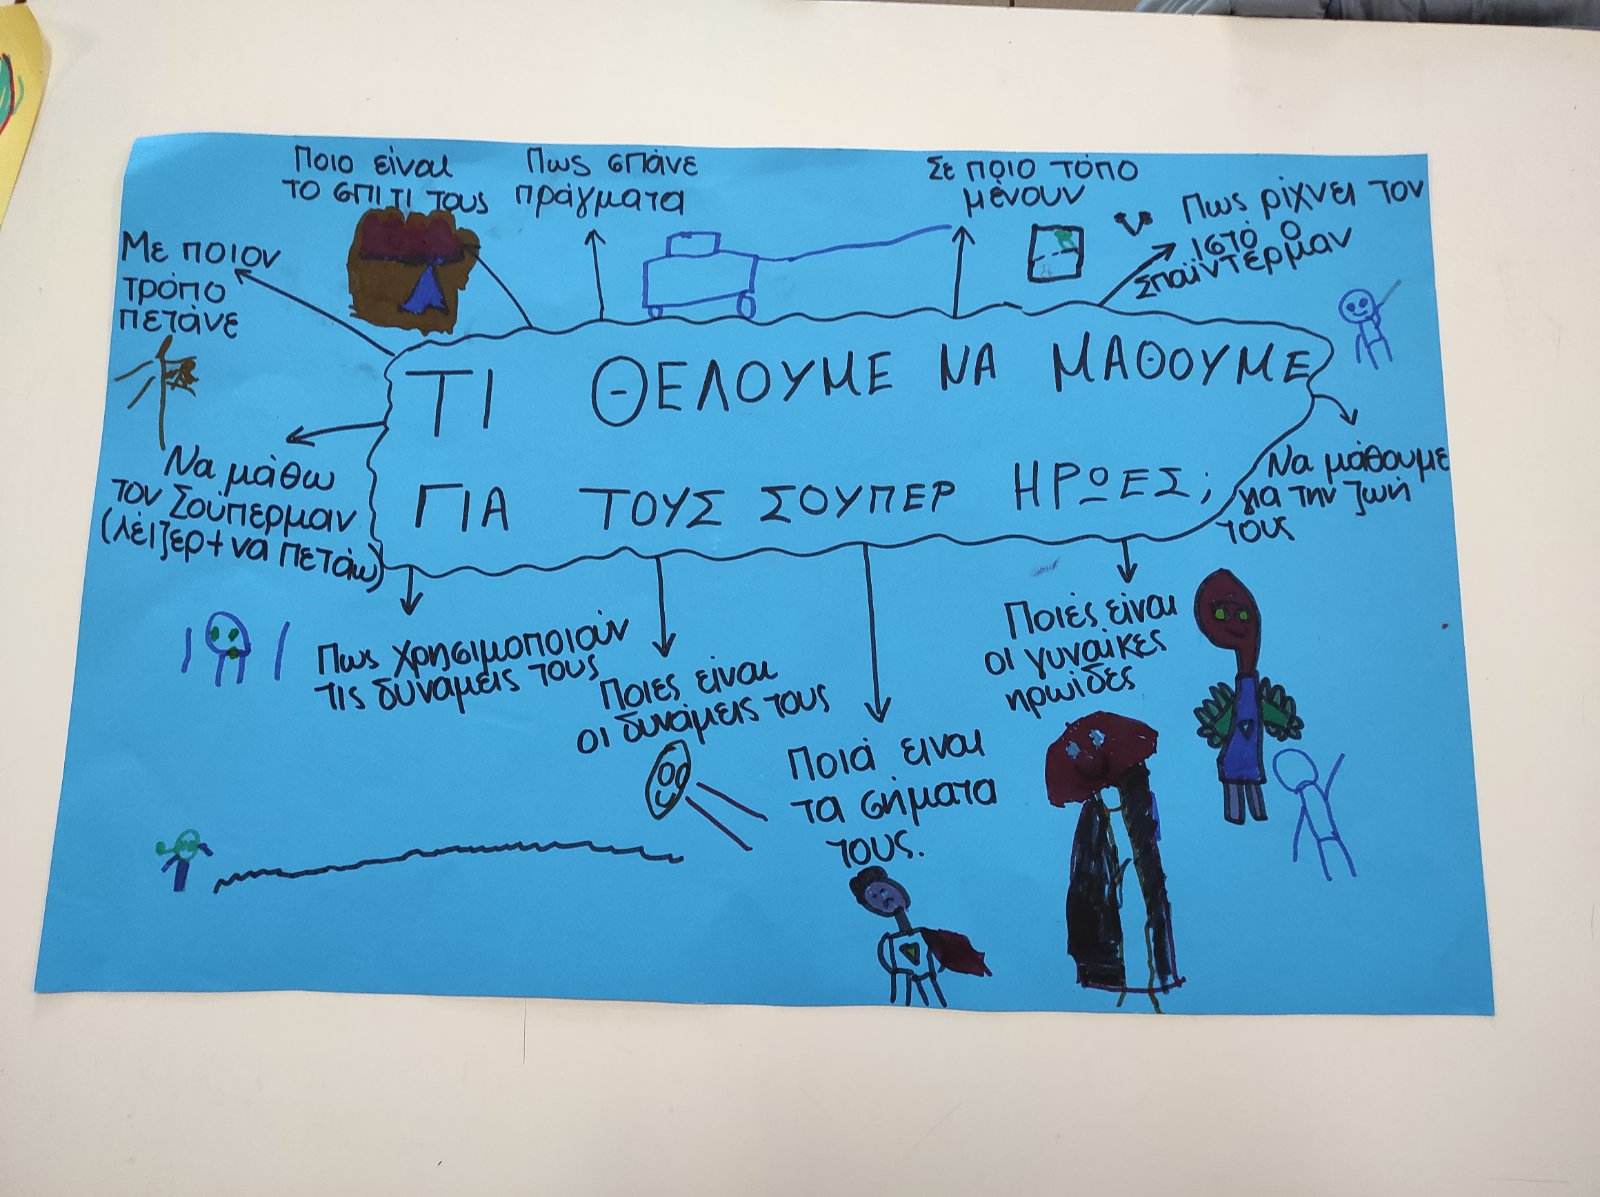 Ποιο είναι
το σπίτι τους
Πως σπάνε
πράγματα
Σε ποιο τόπο
μένουν
Πως ρίχνει τον
ιστό ο
Σπάϊντερμαν
Με ποιον
τρόπο
πετάνε
ΤΙ ΘΕΛΟΥΜΕ ΝΑ ΜΑΘΟΥΜΕ
ΓΙΑ ΤΟΥΣ ΣΟΥΠΕΡ ΗΡΩΕΣ;
Να μάθω
τον Σούπερμαν
(λέιζερ + να πετάω)
Να μάθουμε
για την ζωή
τους
Πως χρησιμοποιούν
τις δυνάμεις τους
Ποιες είναι
οι δυνάμεις τους
Ποιά ειναι
τα σήματα
τους.
Ποιές είναι
οι γυναίκες
ηρωίδες